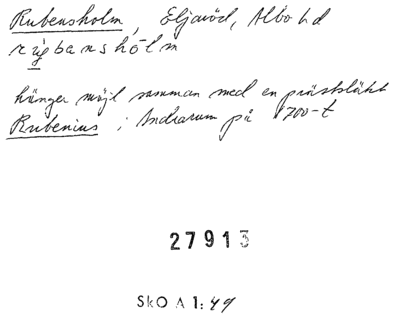 Rubensholm, Eljaröd, Albo hd
rúbanshölm
hänger möjl samman med en prästsläkt
Rubenius i Andrarum på 1700-t
27913
SkO A 1:49